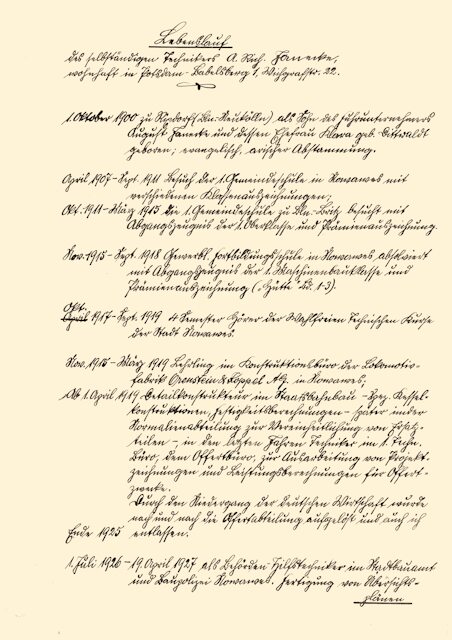 Lebenslauf
des selbständigen Technikers A. Rich. Janecke,
wohnhaft in Potsdam-Babelsberg 1, Wichgrafstr. 22.
1. Oktober 1900 zu Rixdorf (Bln.-Neukölln) als Sohn des Fuhrunternehmers
August Janecke und dessen Ehefrau Klara geb. Dittwaldt
geboren; evangelisch, arischer Abstammung.
April 1907-Sept. 1911 Besuch der 1. Gemeindeschule in Nowawes mit
verschiedenen Klassenauszeichnungen;
Okt. 1911-März 1915 die 1. Gemeindeschule zu Bln.-Britz besucht mit
Abgangszeugnis der 1. Oberklasse und Prämienauszeichnung.
Nov. 1915-Sept. 1918 Gewerbl. Fortbildungsschule in Nowawes, absolviert
mit Abgangszeugnis der 1. Maschinenbauklasse und
Prämienauszeichnung („Hütte" Bd. 1-3).
Okt.
April 1917-Sept. 1919 4 Semester Hörer der Wahlfreien Technischen Kurse
der Stadt Nowawes.
Nov. 1915-März 1919 Lehrling im Konstruktionsbüro der Lokomotiv-
fabrik Orenstein & Koppel A.G. in Nowawes,
Ab 1. April 1919 Detailkonstrukteur im Staatsbahnbau - Spez. Kessel-
konstruktionen, Festigkeitsberechnungen - später in der
Normalienabteilung zur Vereinheitlichung von Ersatz-
teilen - in den letzten Jahren Techniker im 1. Techn.
Büro, dem Offertbüro, zur Ausarbeitung von Projekt-
zeichnungen und Leistungsberechnungen für Offert-
zwecke.
Durch den Niedergang der deutschen Wirtschaft wurde
nach und nach die Offertabteilung aufgelöst und auch ich
Ende 1925 entlassen.
1. Juli 1926-19. April 1927 als Behörden Hilfstechniker im Stadtbauamt
und Baupolizei Nowawes. Fertigung von Übersichts-
plänen